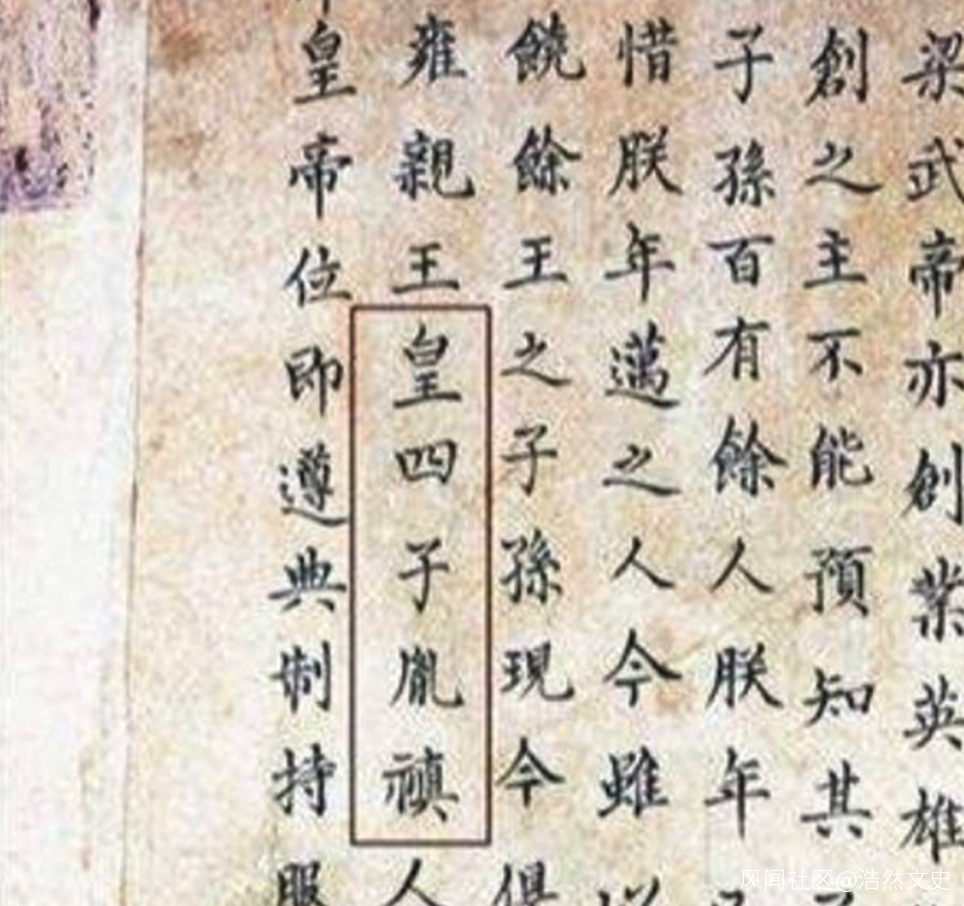 梁武帝亦創業英雄
創之主不能預知其
子孫百有餘人朕年
惜朕年邁之人今雖
饒餘王之子孫現今俱
雍親王皇四子胤禛人
皇帝位即遵典制持服
风闻社区@浩然文史